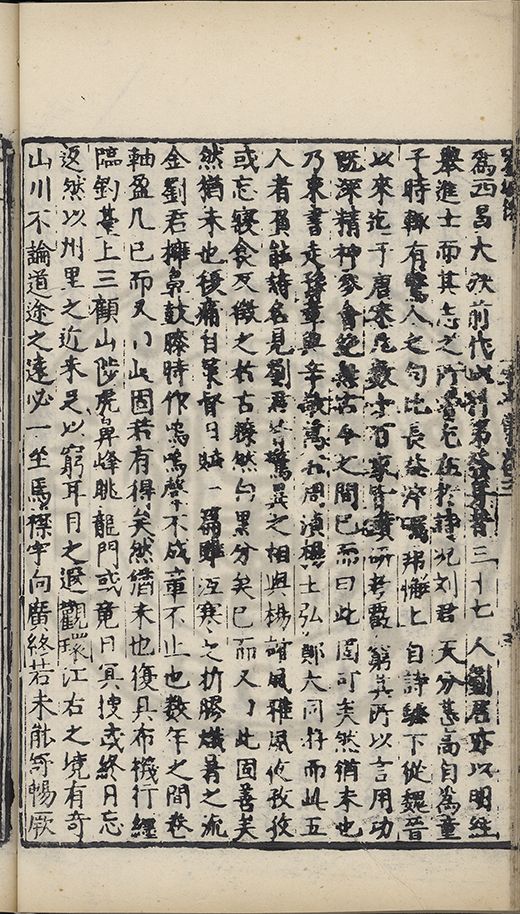 為西昌大族前代以科第發身者三十七人劉君亦以明經
舉進士而其志之所嗜尤在於詩始劉君天分甚高自為童
子時輒有驚人之句比長益淬礪邦悱上自詩騷下從魏晉
以來迄于唐宋凡數十百家皆鑽研考覈窮其所以言用功
既深精神參會絶無古今之間已而曰此固可矣然猶未也
乃束書走豫章與辛敬萬石周湞楊士弘鄭大同游而此五
人者負能詩名見劉君皆驚異之相與揚㩁風雅風俊孜孜
或忘寢食及徵之於古瞭然白黑分矣已而又曰此固善矣
然猶未也復痛自策督日賦一篇雖沍寒之折膠熾暑之流
金劉君擁鼻鼓膝時作嗚嗚聲不成章不止也數年之間卷
軸盈几已而又曰此固若有得矣然猶未也復具布機行纒
臨釣臺上三顧山陟虎鼻峰眺龍門或竟日冥搜或終月忘
返然以州里之近未足以窮耳目之遐觀環江右之境有奇
山川不論道途之遠必一坐馬檪字向廣終若未能舒暢厥